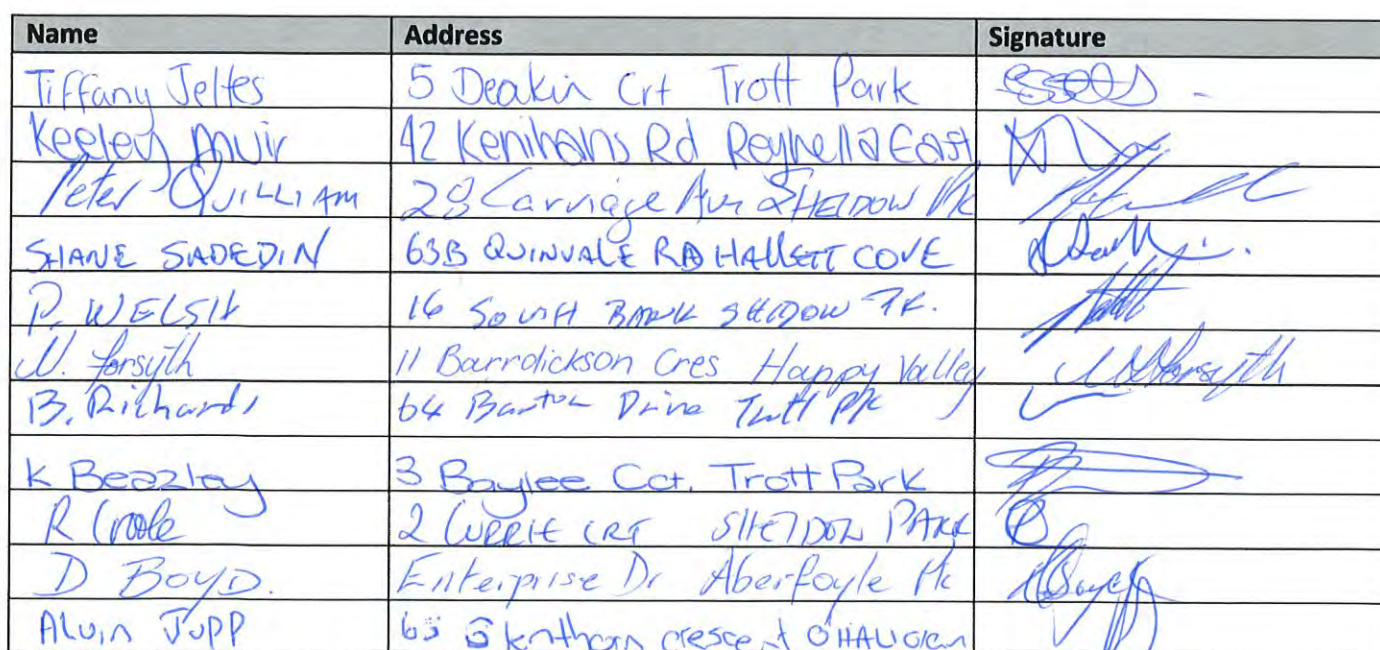 Name Address Signature
Tiffany Jeltes 5 Deakin Crt Trott Park
Keeley Muir 42 Kenihans Rd Reynella East
Peter QUILLIAM 28 Carriage Ave SHEIDOW Pk
SHANE SADEDIN 63B QUINVALE RD HALLETT COVE
P. WELSH 16 SOUTH BANK SHEIDOW PK.
N. Forsyth 11 Barrdickson Cres Happy Valley
B. Richards 64 Barton Drive Trott Pk
K Beazley 3 Baylee Cct. Trott Park
R Coole 2 CURRIE CRT SHEIDOW PARK
D BOYD. Enterprise Dr Aberfoyle Pk
Alvin JUPP 63 crescent